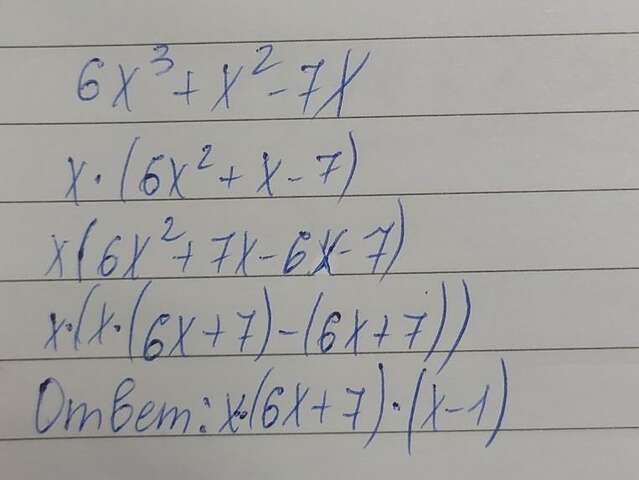 6x³+x²-7x
x·(6x²+x-7)
x(6x²+7x-6x-7)
x·(x·(6x+7)-(6x+7))
Ответ: x·(6x+7)·(x-1)